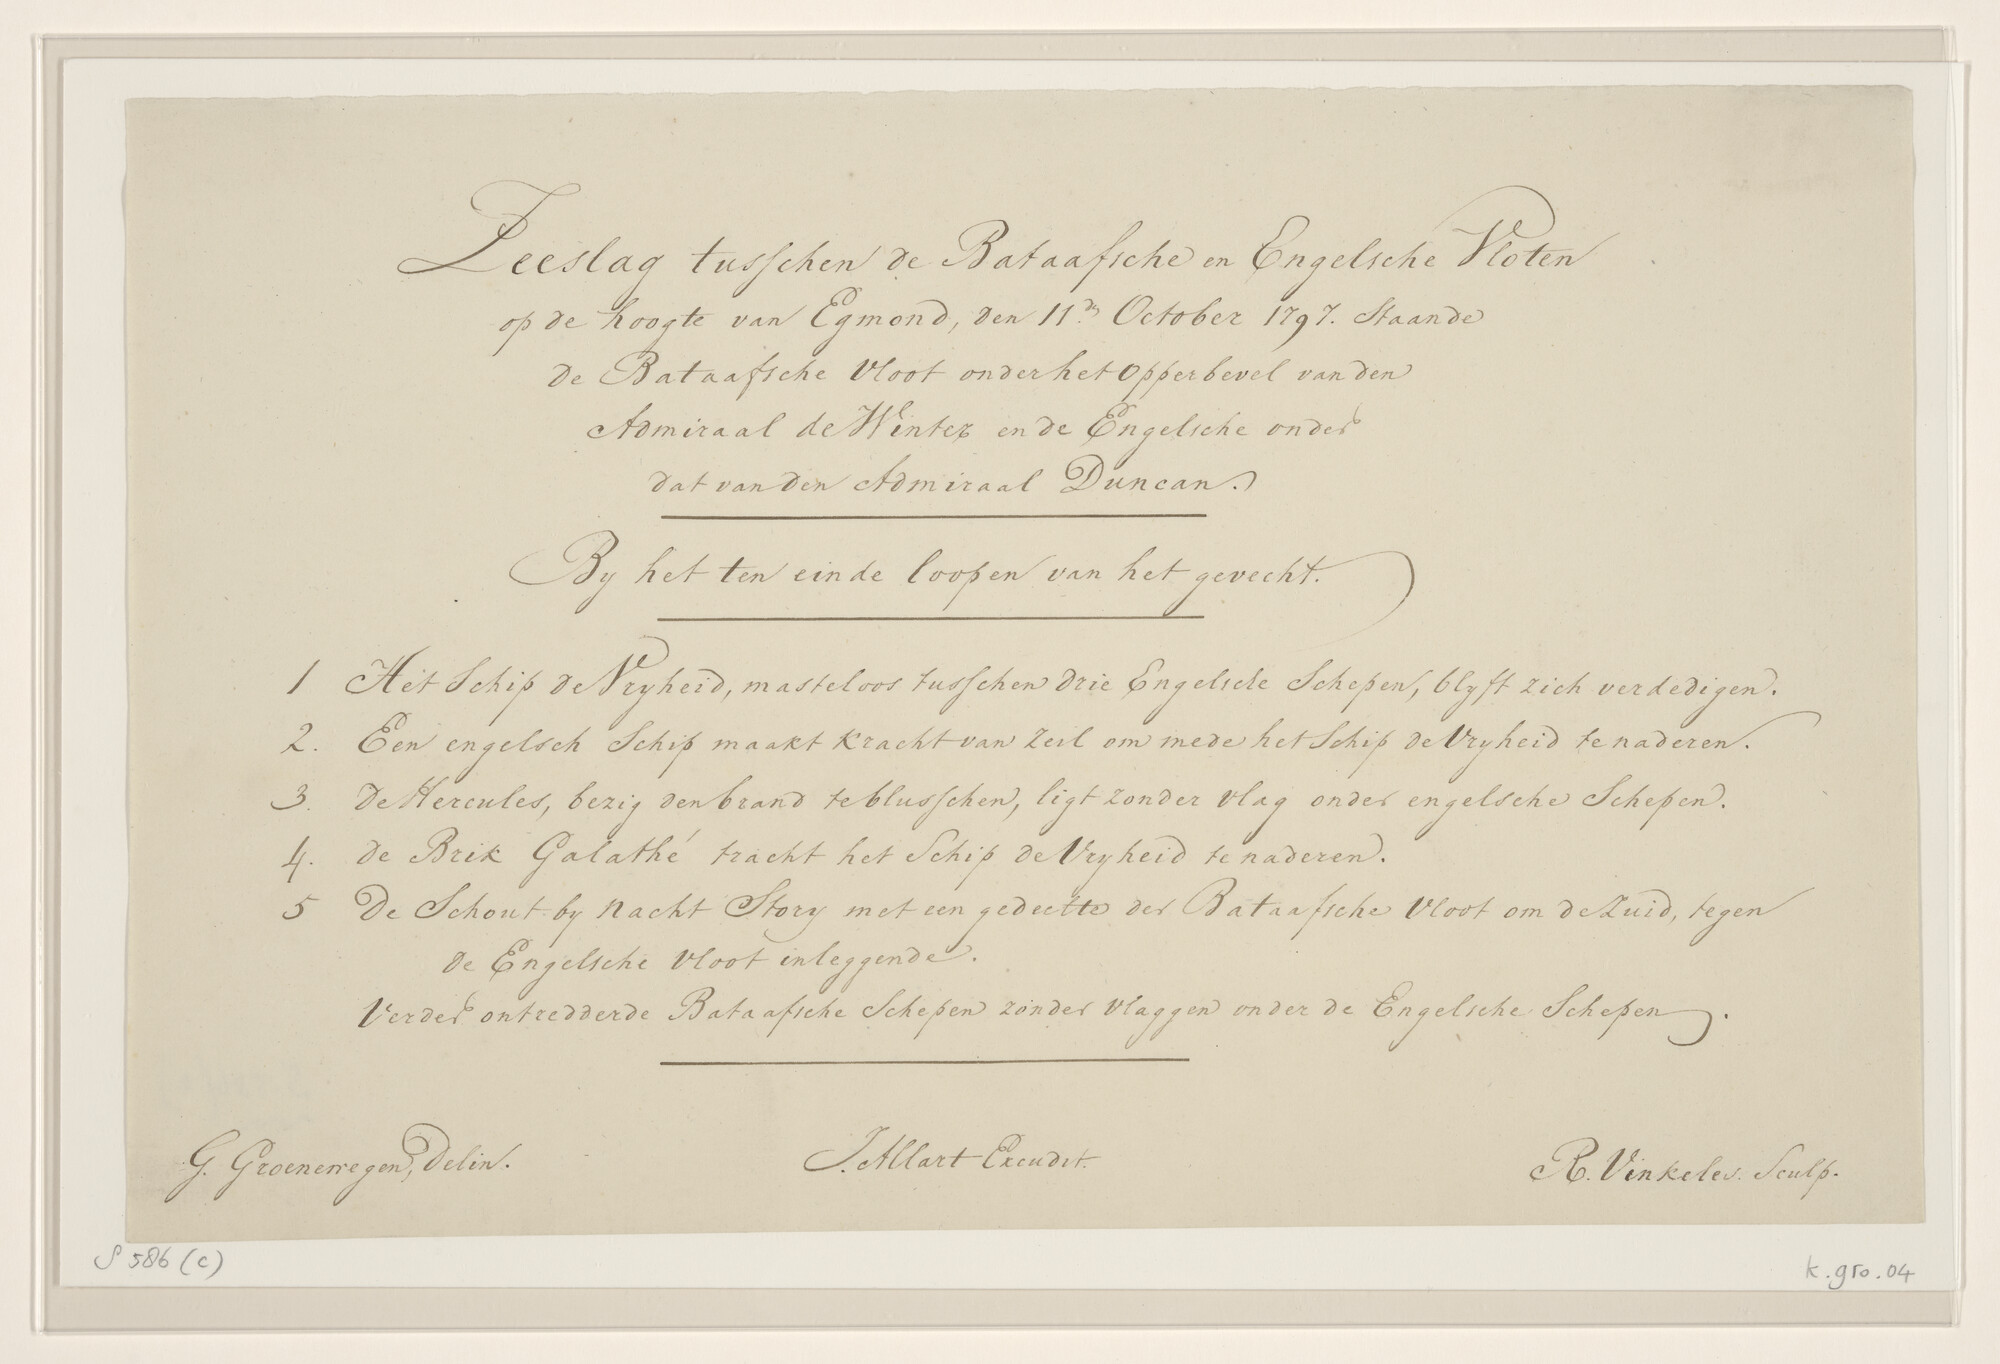 Zeeslag tusschen de Bataafsche en Engelsche Vloten
op de hoogte van Egmond, den 11.de October 1797. Staande
de Bataafsche Vloot onder het Opperbevel van den
Admiraal de Winter en de Engelsche onder
dat van den Admiraal Duncan.
By het ten einde loopen van het gevecht.
1 Het Schip de Vryheid, masteloos tusschen drie Engelsche Schepen, blyft zich verdedigen.
2. Een engelsch Schip maakt kracht van Zeil om mede het Schip de Vryheid te naderen.
3. de Hercules, bezig den brand te blusschen, ligt zonder vlag onder engelsche Schepen.
4. de Brik Galathé tracht het Schip de Vryheid te naderen.
5 De Schout by Nacht Story met een gedeelte der Bataafsche Vloot om de Zuid, tegen
de Engelsche Vloot inleggende.
Verder ontredderde Bataafsche Schepen zonder vlaggen onder de Engelsche Schepen.
G. Groenewegen, Delin. J. Allart Excudit. R. Vinkeles. Sculp.
S 586 (c) k.gro.04